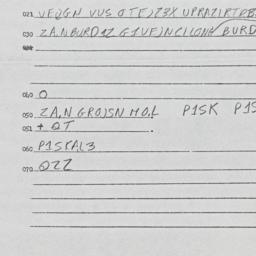 021 VEQGN VVS OTE)Z3X UPRAZIRTDB
030 ZA.NBURD4Z G1VE)NCILONA BURD
040 O
050 ZA.N GRO)SN MO.L P1SK P1S
051 + QT .
060 P1SKAL3
070 OZZ